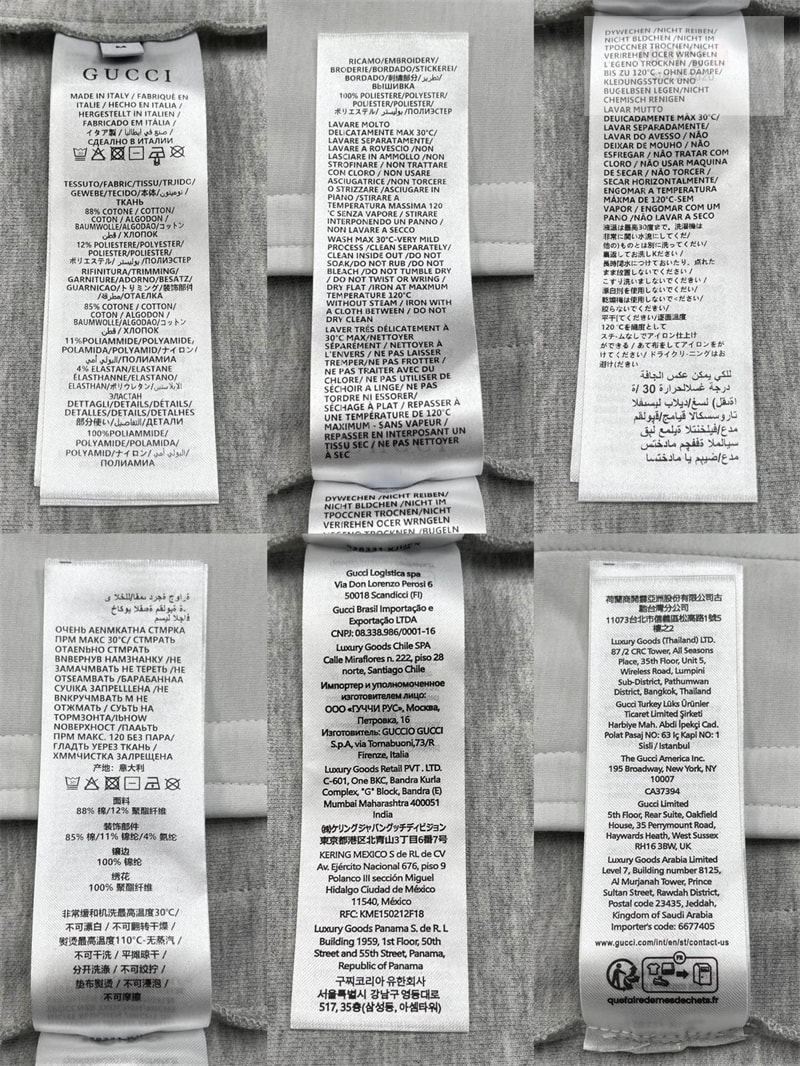 GUCCI
MADE IN ITALY / FABRIQUÉ EN
ITALIE / HECHO EN ITALIA /
HERGESTELLT IN ITALIEN /
FABRICADO EM ITÁLIA /
イタア製 / صنع في ايطاليا /
СДЕЛАНО В ИТАЛИИ
TESSUTO/FABRIC/TISSU/TRJIDO/
GEWEBE/TECIDO/本体/
ТКАНЬ
88% COTONE / COTTON/
COTON / ALGODON /
BAUMWOLLE/ALGODAO/コットン
قطن / ХЛОПОК
12% POLIESTERE/POLYESTER/
POLIESTER/POLYESTER/
ポリエステル/بوليستر/ПОЛИЭСТЕР
RIFINITURA/TRIMMING/
GARNITURE/ADORNO/BESATZ/
GUARNICAO/トリミング/装饰部件
/ОТАЕЛКА
85% COTONE / COTTON
COTON / ALGODON /
BAUMWOLLE/ALGODAO/コットン
قطن / ХЛОПОК
11%POLIAMMIDE/POLYAMIDE,
POLAMIDA/POLYAMID/ナイロン/
البولي أمي/ПОЛИАМИА
4% ELASTAN/ELASTANE
ELASTHANNE/ELASTANO/
ELASTHAN/ポリウレタン/
ЭЛАСТАН
DETTAGLI/DETAILS/DÉTAILS/
DETALLES/DETAILS/DETALHES
部分使い/التفاصيل/ДЕТАЛИ
100%POLIAMMIDE/
POLYAMIDE/POLAMIDA/
POLYAMID/ナイロン/البولي أمي/
ПОЛИАМИА
RICAMO/EMBROIDERY/
BRODERIE/BORDADO/STICKEREI/
BORDADO/刺繍部分/تطريز/
ВЫШИВКА
100% POLIESTERE/POLYESTER/
POLYESTER/POLIESTER/POLYESTER/
ポリエステル/بوليستر/ПОЛИЭСТЕР
LAVARE MOLTO
DELICATAMENTE MAX 30°C/
LAVARE SEPARATAMENTE/
LAVARE A ROVESCIO /NON
LASCIARE IN AMMOLLO /NON
STROFINARE / NON TRATTARE
CON CLORO / NON USARE
ASCIUGATRICE /NON TORCERE
O STRIZZARE /ASCIUGARE IN
PIANO /STIRARE A
TEMPERATURA MASSIMA 120
°C SENZA VAPORE / STIRARE
INTERPONENDO UN PANNO /
NON LAVARE A SECCO
WASH MAX 30°C-VERY MILD
PROCESS /CLEAN SEPARATELY/
CLEAN INSIDE OUT /DO NOT
SOAK/DO NOT RUB /DO NOT
BLEACH /DO NOT TUMBLE DRY
/ DO NOT TWIST OR WRING /
DRY FLAT /IRON AT MAXMUM
TEMPERATURE 120°C
WITHOUT STEAM / IRON WITH
A CLOTH BETWEEN / DO NOT
DRY CLEAN
LAVER TRÉS DÉLICATEMENT À
30°C MAX/NETTOYER
SÉPARÉMENT / NETTOYER À
L'ENVERS / NE PAS LAISSER
TREMPER/NE PAS FROTTER /
NE PAS TRAITER AVEC DU
CHLORE/ NE PAS UTILISER DE
SÉCHOIR A LINGE/ NE PAS
TORDRE NI ESSORER/
SÉCHAGE À PLAT / REPASSER À
UNE TEMPÉRATURE DE 120°C
MAXIMUM - SANS VAPEUR /
REPASSER EN INTERPOSANT UN
TISSU SEC / NE PAS NETTOYER
À SEC
DYWECHEN /NICHT REIBEN/
NICHT BLDCHEN /NICHT IM
TPOCCNER TROCNEN/NICHT
VERIREHEN OCER WRNGELN
DYWECHEN /NICHT REIBEN/
NICHT BLDCHEN /NICHT IM
TPOCCNER TROCNEN/NICHT
VERIREHEN OCER WRNGELN
L'EGENO TROCNEN / BUGELN
BIS ZU 120°C - OHNE DAMPE/
KLEDUNGSSTUCK UND
BUGELBSEN LEGEN/NICHT
CHEMISCH RENIGEN
LAVAR MUTTO
DEUICADAMENTE MÁX 30°C/
LAVAR SEPARADAMENTE/
LAVAR DO AVESSO / NÃO
DEIXAR DE MOUHO / NÃO
ESFREGAR / NÃO TRATAR COM
CLORO / NÃO USAR MAQUINA
DE SECAR / NÃO TORCER /
SECAR HORIZONTALMENTE/
ENGOMAR A TEMPERATURA
MÀXMA DE 120°C-SEM
VAPOR / ENGOMAR COM UM
PANO /NÃO LAVAR A SECO
液温は最高30度まで。洗濯機は
非常に開い水流にしてくだ/
他のものとは別に洗ってくだい/
裏返してお洗しKださい/
長時時水につけておいたり、点れた
まま放置しないでください/
こすり洗いましないでください/
乾燥機は使用しないで<ださい/
絞らないでください/
120℃を縟度として
スチ-ムなしでアイロン仕上け
ができる / あて布をしてアイロンをか
けてください/ ドライクリ-ニングはお
避け(ださい
ОЧЕНЬ АЕNМКАТНА СТМРКА
ПРМ МАКС 30°C/ СТМРАТЬ
ОТАЕNЬНО СТМРАТЬ
ВNВЕРНУВ НАМЗНАНКУ /НЕ
ЗАМАЧМВАТЬ НЕ ТЕРЕТЬ /НЕ
ОТSЕАМВАТЬ /БАРАБАННАА
СУUIKA ЗАПРЕLLLEHA /НЕ
ВNКРУЧМВАТЬ М НЕ
ОТЖМАТЬ / СУЬТЬ НА
ТОРМЗОНТА/ЬНОW
NОВЕРХНОСТ /ПААЬТЬ
ПРМ МАКС. 120 БЕЗ ПАРА/
ГЛАДТЬ УЕРЕЗ ТКАНЬ /
ХММЧИСТКА ЗАЛРЕЩЕНА
产地: 意大利
面料
88% 棉/12% 聚酯纤维
装饰部件
85% 棉/11% 锦纶/4% 氨纶
镶边
100% 锦纶
绣花
100% 聚酯纤维
非常缓和机洗最高温度30℃/
不可漂白 / 不可翻转干燥 /
熨烫最高温度110℃-无蒸汽 /
不可干洗 / 平摊晾干 /
分开洗涤 / 不可绞拧 /
垫布熨烫 / 不可浸泡 /
不可摩擦
Gucci Logistica spa
Via Don Lorenzo Perosi 6
50018 Scandicci (FI)
Gucci Brasil Importação e
Exportação LTDA
CNPJ: 08.338.986/0001-16
Luxury Goods Chile SPA
Calle Miraflores n. 222, piso 28
norte, Santiago Chile
Импортер и уполномоченное
изготовителем лицо:
ООО «ГУЧЧИ РУС», Москва,
Петровка, 16
Изготовитель: GUCCIO GUCCI
S.p.A, via Tornabuoni,73/R
Firenze, Italia
Luxury Goods Retail PVT . LTD.
C-601, One BKC, Bandra Kurla
Complex, "G" Block, Bandra (E)
Mumbai Maharashtra 400051
India
㈱ケリングジャパングッチディビジョン
東京都港区北青山3丁目6番7号
KERING MEXICO S de RL de CV
Av. Ejército Nacional 676, piso 9
Polanco III sección Miguel
Hidalgo Ciudad de México
11540, México
RFC: KME150212F18
Luxury Goods Panama S. de R. L
Building 1959, 1st Floor, 50th
Street and 55th Street, Panama,
Republic of Panama
구찌코리아 유한회사
서울특별시 강남구 영동대로
517, 35층(삼성동, 아셈타워)
荷蘭商開雲亞洲股份有限公司古
馳台灣分公司
11073台北市信義區松高路1號5
樓之2
Luxury Goods (Thailand) LTD.
87/2 CRC Tower, All Seasons
Place, 35th Floor, Unit 5,
Wireless Road, Lumpini
Sub-District, Pathumwan
District, Bangkok, Thailand
Gucci Turkey Lüks Ürünler
Ticaret Limited Şirketi
Harbiye Mah. Abdi İpekçi Cad.
Polat Pasaj NO: 63 İç Kapi NO: 1
Sisli / Istanbul
The Gucci America Inc.
195 Broadway, New York, NY
10007
CA37394
Gucci Limited
5th Floor, Rear Suite, Oakfield
House, 35 Perrymount Road,
Haywards Heath, West Sussex
RH16 3BW, UK
Luxury Goods Arabia Limited
Level 7, Building number 8125,
Al Murjanah Tower, Prince
Sultan Street, Rawdah District,
Postal code 23435, Jeddah,
Kingdom of Saudi Arabia
Importer's code: 6677405
www.gucci.com/int/en/st/contact-us
FR
quefairedemesdechets.fr